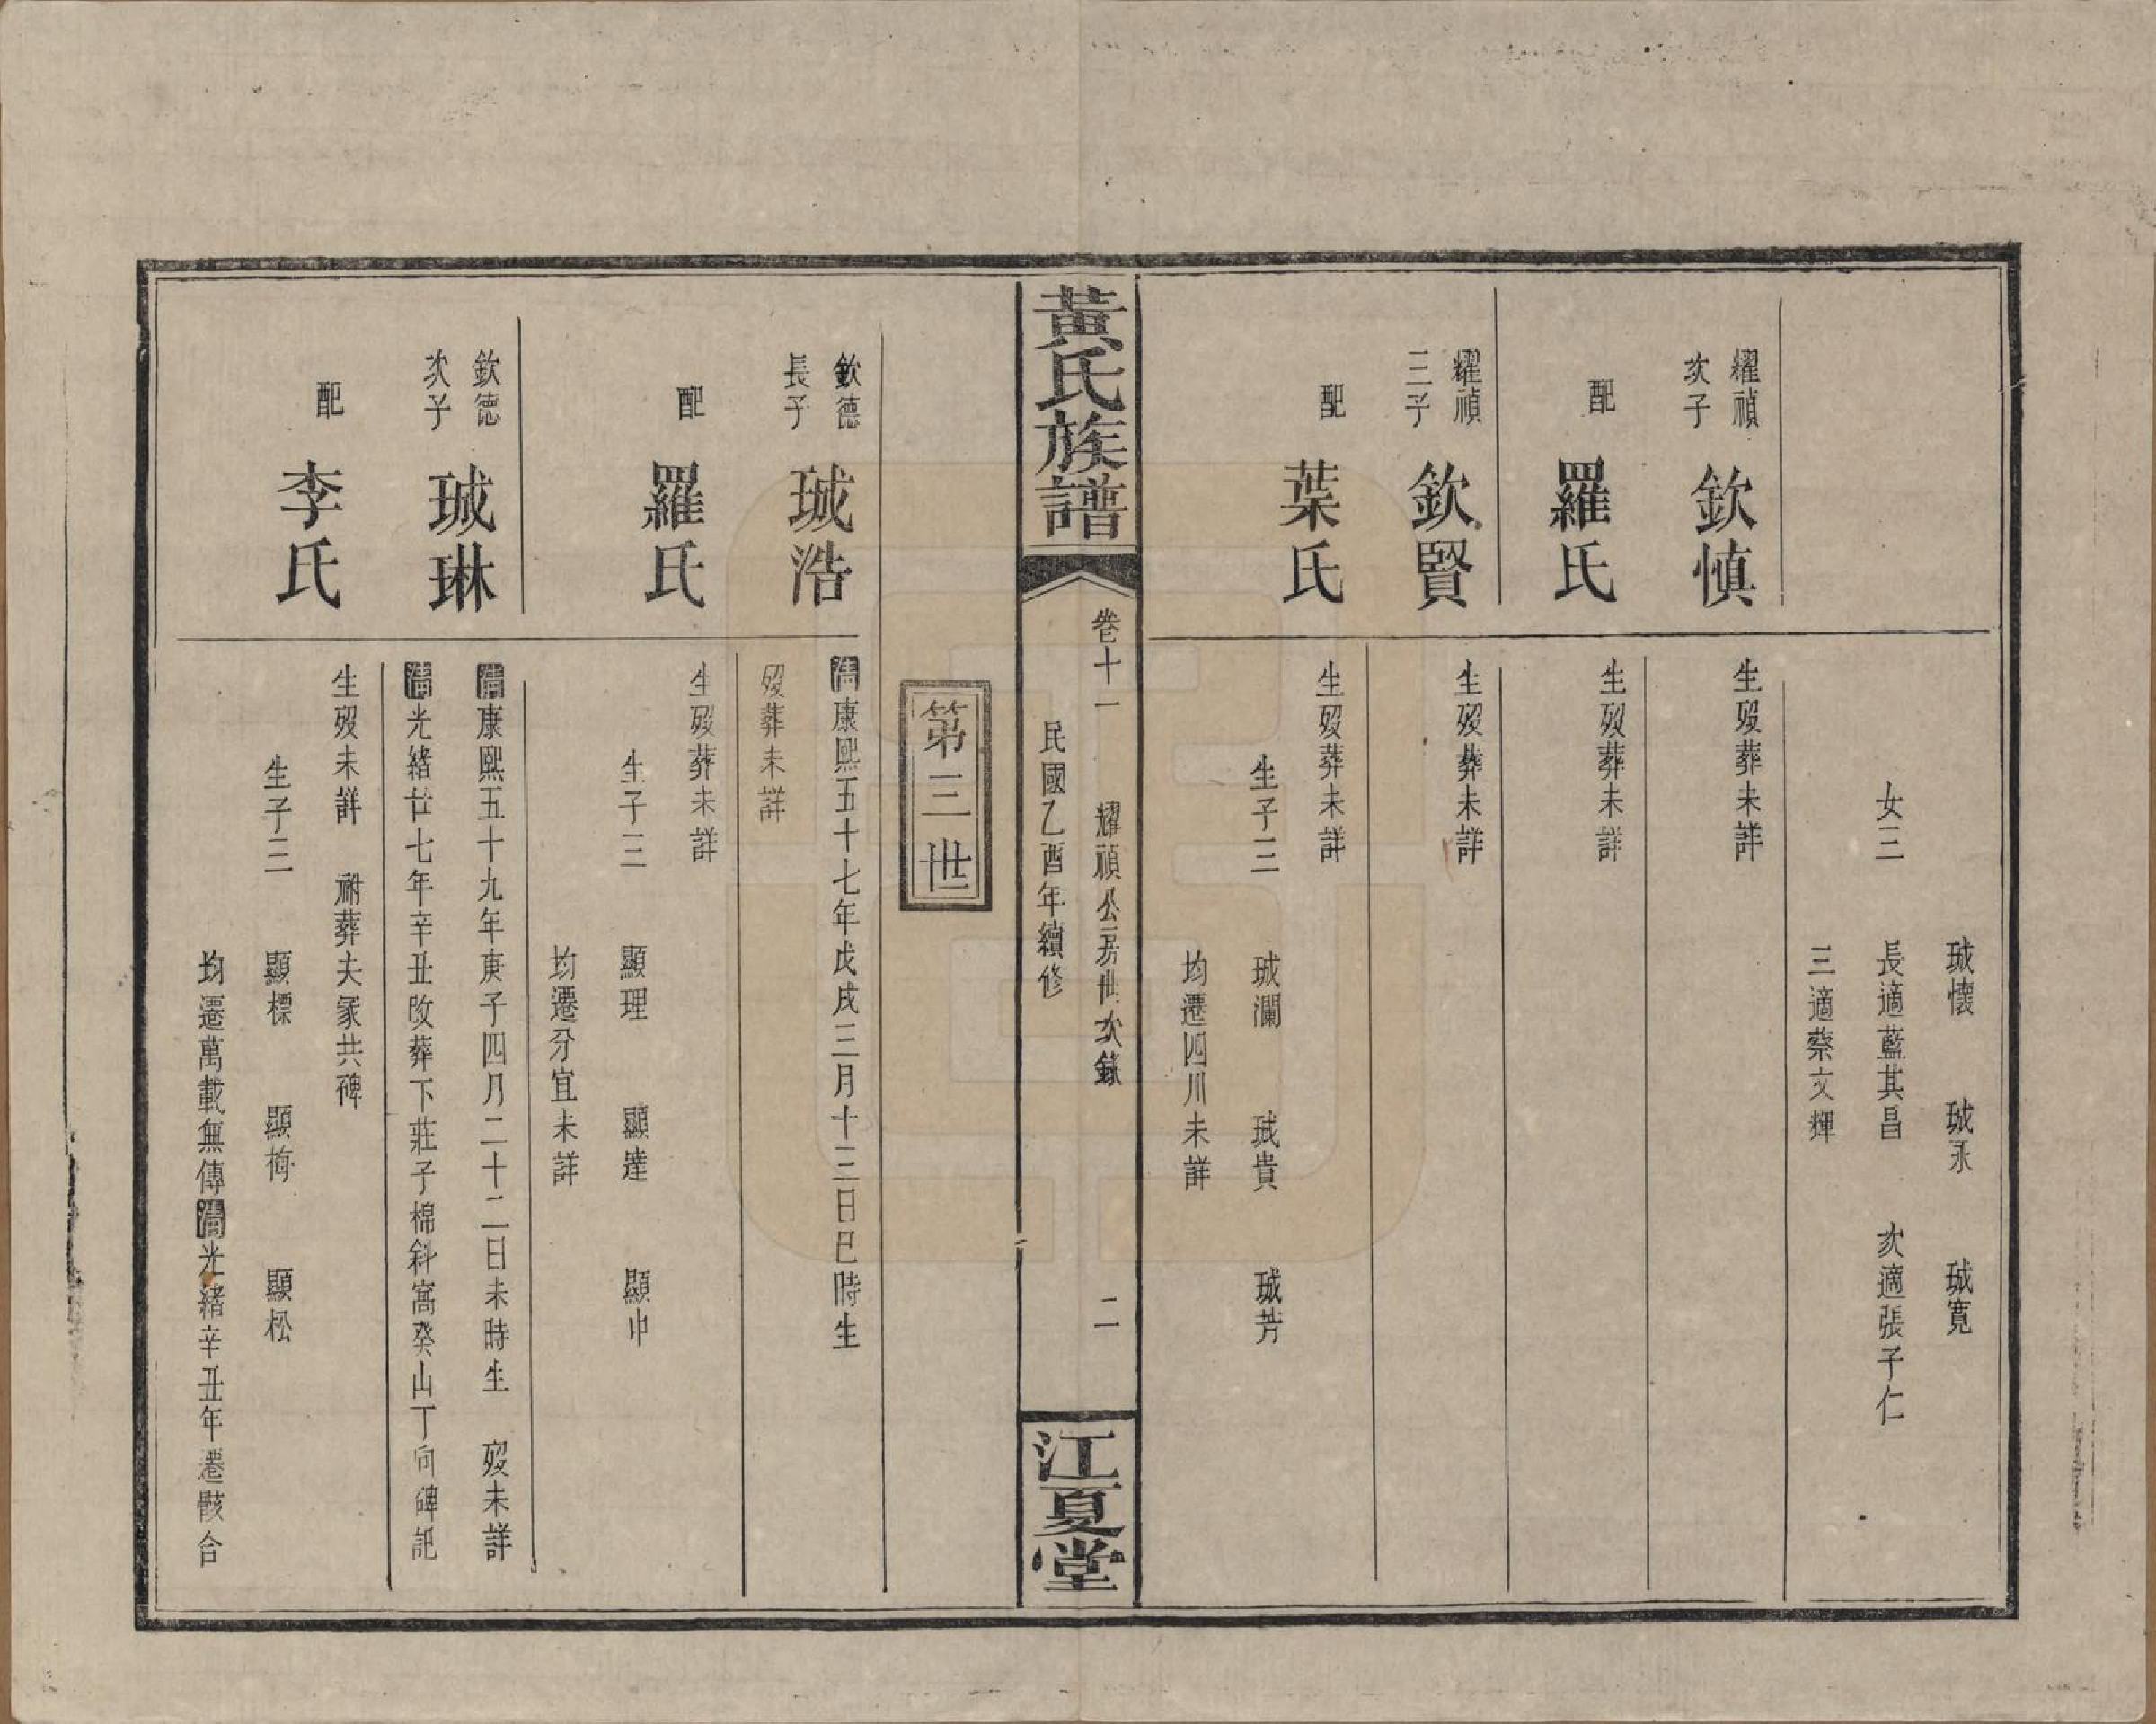 珹懷　珹永　珹寬
女三　長適藍其昌　次適張子仁
三適蔡文輝
耀禎次子　欽慎
生歿葬未詳
配　羅氏
生歿葬未詳
耀禎三子　欽賢
生歿葬未詳
配　葉氏
生歿葬未詳
生子三　珹瀾　珹貴　珹芳
均遷四川未詳
黃氏族譜
卷十一　耀禎公房世次錄　二
民國乙酉年續修
江夏堂
第三世
欽德長子　珹浩
清康熙五十七年戊戌三月十三日巳時生
歿葬未詳
配　羅氏
生歿葬未詳
生子三　顯理　顯達　顯中
均遷分宜未詳
欽德次子　珹琳
清康熙五十九年庚子四月二十二日未時生　歿未詳
清光緒廿七年辛丑改葬下莊子棉斜窩癸山丁向碑誌
配　李氏
生歿未詳　祔葬夫冢共碑
生子三　顯標　顯荷　顯松
均遷萬載無傳清光緒辛丑年遷骸合